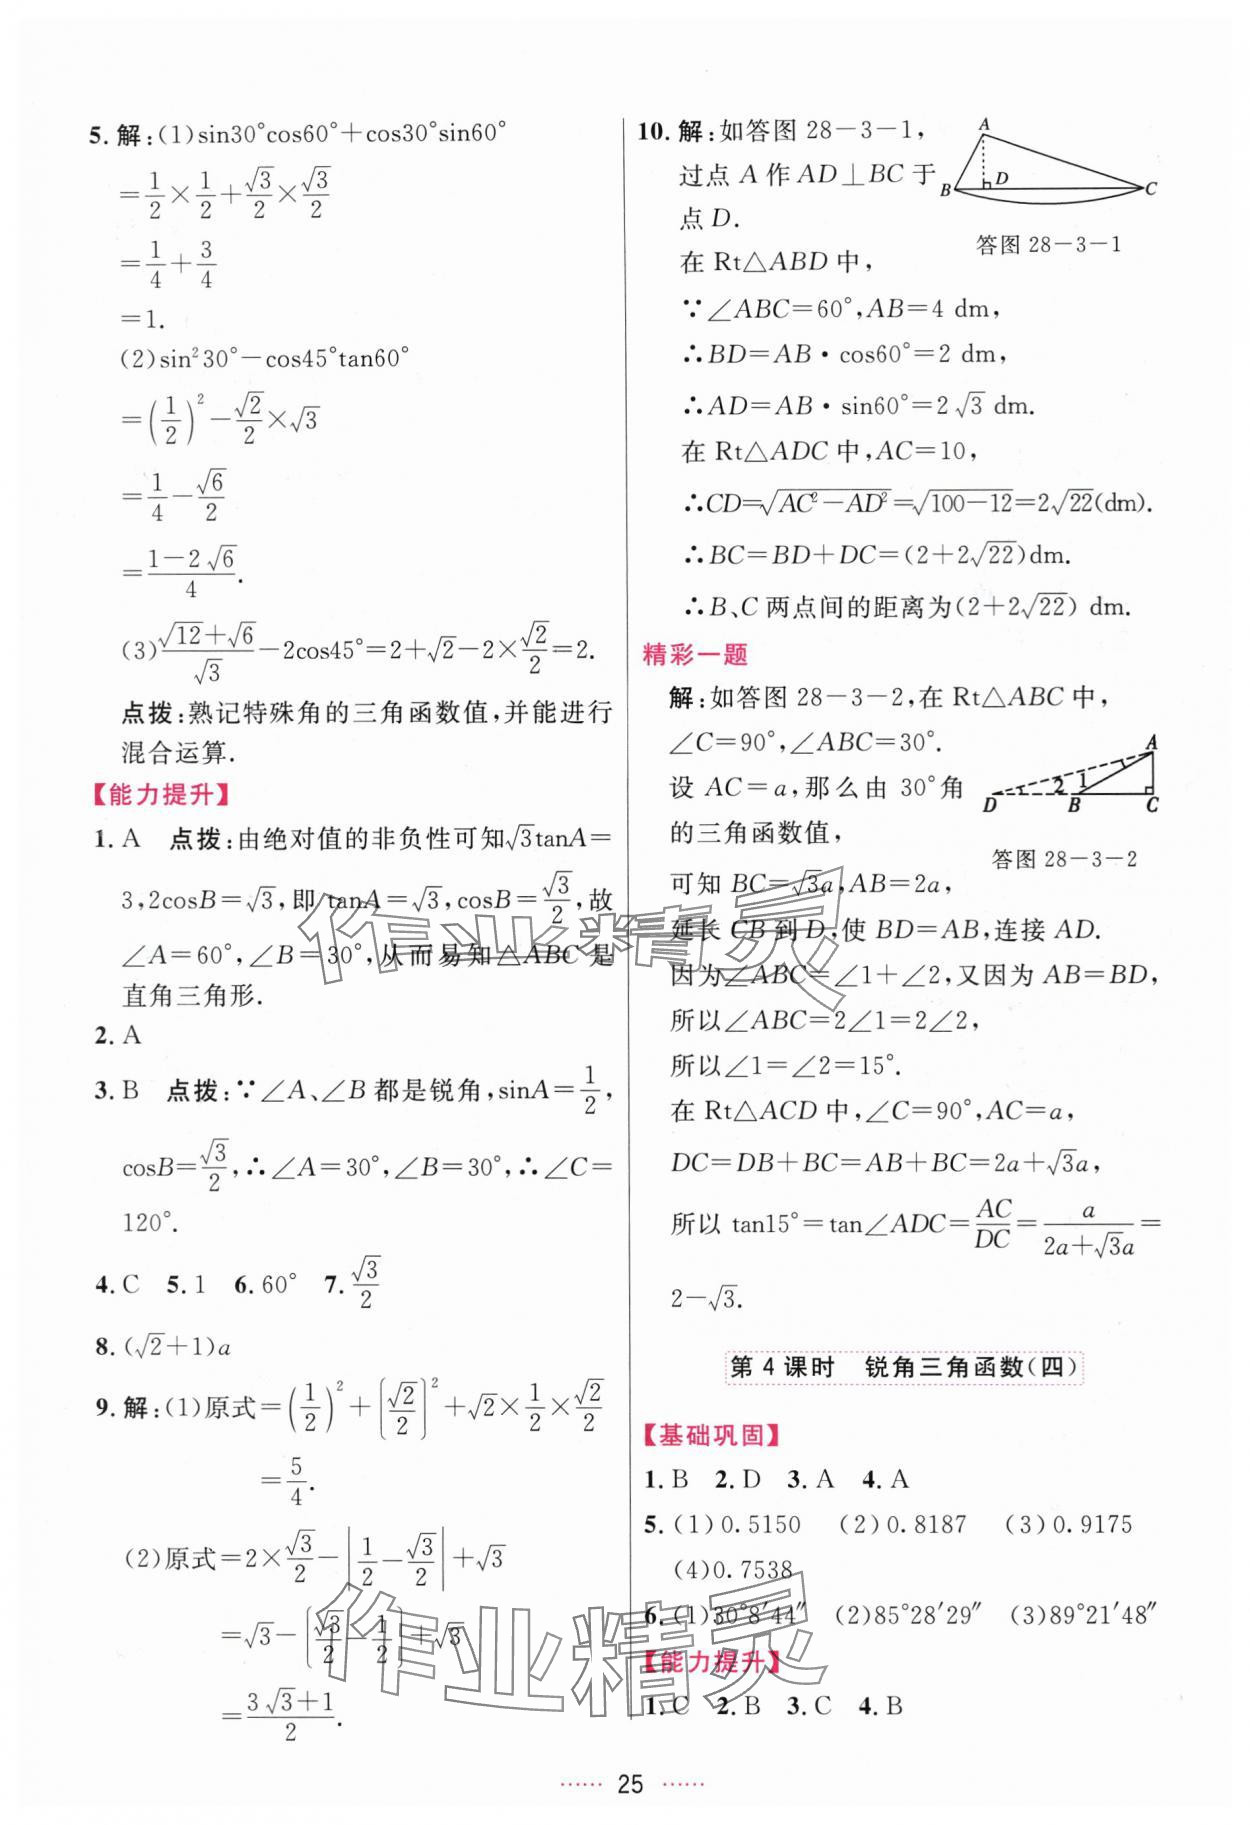 5. 解:(1)sin30°cos60°+cos30°sin60°
=1/2×1/2+√3/2×√3/2
=1/4+3/4
=1.
(2)sin²30°-cos45°tan60°
=(1/2)²-√2/2×√3
=1/4-√6/2
=(1-2√6)/4.
(3)(√12+√6)/√3-2cos45°=2+√2-2×√2/2=2.
点拨:熟记特殊角的三角函数值,并能进行
混合运算.
【能力提升】
1. A 点拨:由绝对值的非负性可知√3tanA=
3,2cosB=√3,即tanA=√3,cosB=√3/2,故
∠A=60°,∠B=30°,从而易知△ABC是
直角三角形.
2. A
3. B 点拨:∵∠A、∠B都是锐角,sinA=1/2,
cosB=√3/2,∴∠A=30°,∠B=30°,∴∠C=
120°.
4. C 5. 1 6. 60° 7. √3/2
8. (√2+1)a
9. 解:(1)原式=(1/2)²+(√2/2)²+√2×1/2×√2/2
=5/4.
(2)原式=2×√3/2-|1/2-√3/2|+√3
=√3-(√3/2-1/2)+√3
=(3√3+1)/2.
10. 解:如答图28-3-1,
过点A作AD⊥BC于
点D.
A
B
D
C
答图28-3-1
在Rt△ABD中,
∵∠ABC=60°,AB=4 dm,
∴BD=AB·cos60°=2 dm,
∴AD=AB·sin60°=2√3 dm.
在Rt△ADC中,AC=10,
∴CD=√(AC²-AD²)=√(100-12)=2√22(dm).
∴BC=BD+DC=(2+2√22)dm.
∴B、C两点间的距离为(2+2√22) dm.
精彩一题
解:如答图28-3-2,在Rt△ABC中,
∠C=90°,∠ABC=30°.
设AC=a,那么由30°角
的三角函数值,
A
D
2
1
B
C
答图28-3-2
可知BC=√3a,AB=2a,
延长CB到D,使BD=AB,连接AD.
因为∠ABC=∠1+∠2,又因为AB=BD,
所以∠ABC=2∠1=2∠2,
所以∠1=∠2=15°.
在Rt△ACD中,∠C=90°,AC=a,
DC=DB+BC=AB+BC=2a+√3a,
所以tan15°=tan∠ADC=AC/DC=a/(2a+√3a)=
2-√3.
第4课时 锐角三角函数(四)
【基础巩固】
1. B 2. D 3. A 4. A
5. (1)0.5150 (2)0.8187 (3)0.9175
(4)0.7538
6. (1)30°8′44″ (2)85°28′29″ (3)89°21′48″
【能力提升】
1. C 2. B 3. C 4. B
作业精灵
作业精灵
······ 25 ······